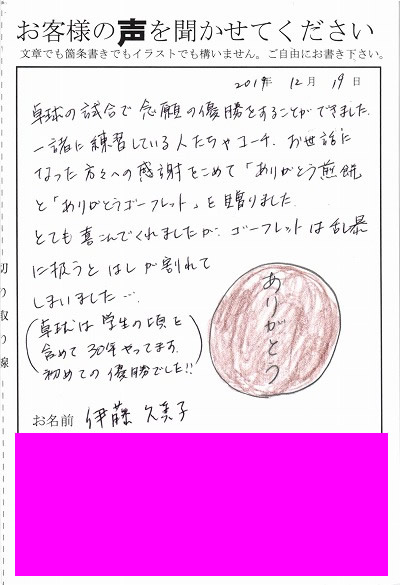 お客様の声を聞かせてください
文章でも箇条書きでもイラストでも構いません。ご自由にお書き下さい。
2019年 12月 19日
卓球の試合で念願の優勝をすることができました。
一緒に練習している人たちやコーチ、お世話に
なった方々への感謝をこめて「ありがとう煎餅」
と「ありがとうゴーフレット」を贈りました。
とても喜んでくれましたが、ゴーフレットは乱暴
に扱うとはしが割れて
しまいました…。
(卓球は学生の頃も
含めて30年やってます。
初めての優勝でした!!)
ありがとう
切り取り線
お名前 伊藤 久美子